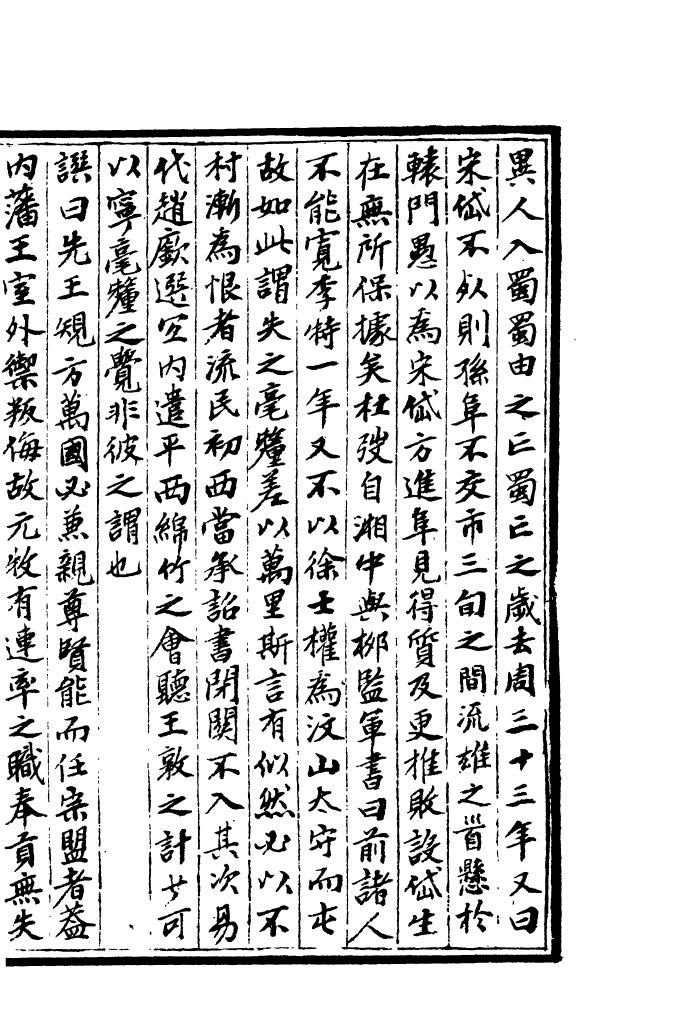 異人入蜀蜀由之亡蜀亡之歲去周三十三年又曰
宋岱不死則孫阜不交市三旬之間流雄之首懸於
轅門愚以為宋岱方進阜見得質及更推敗設岱生
在無所保據矣杜弢自湘中與柳監軍書曰前諸人
不能寬李特一年又不以徐士權為汶山太守而屯
故如此謂失之毫釐差以萬里斯言有似然必以不
村漸為恨者流民初西當承詔書閉關不入其次易
代趙廞選宜內遣平西綿竹之會聽王敦之計少可
以寧毫釐之覺非彼之謂也
譔曰先王規方萬國必兼親尊賢能而任宗盟者蓋
內藩王室外禦叛侮故元牧有連率之職奉貢無失